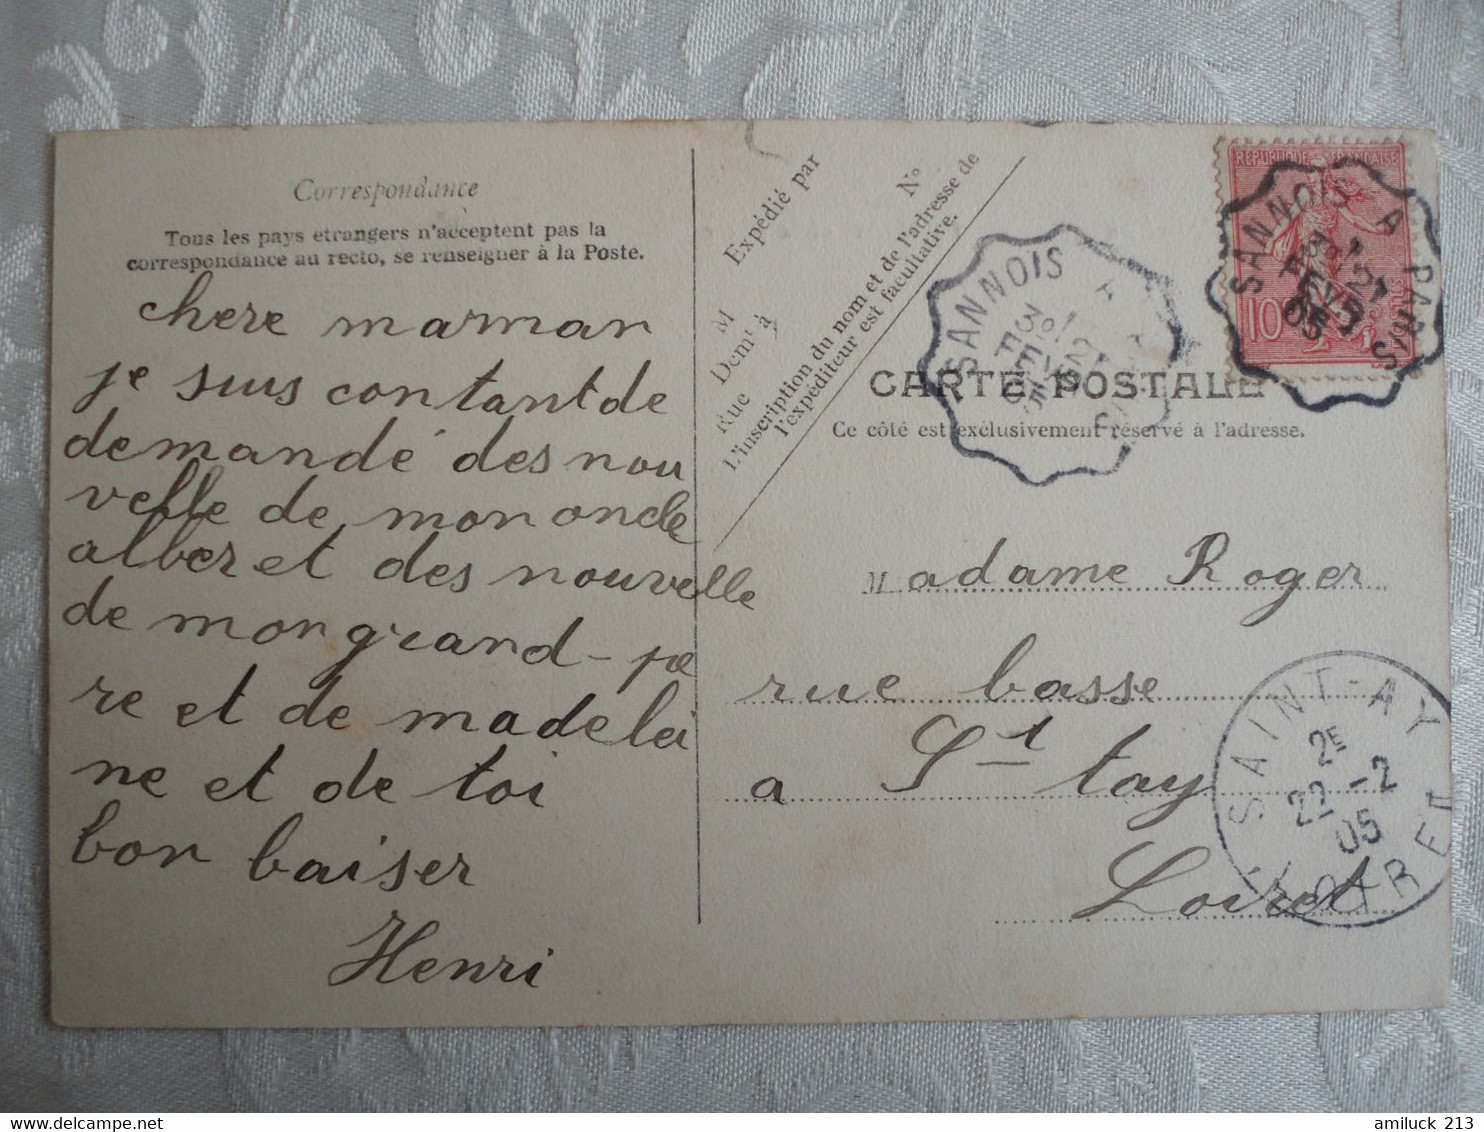 Correspondance
Tous les pays etrangers n'acceptent pas la
correspondance au recto, se renseigner à la Poste.
chere maman
je suis contant de
demandé des nou
velle de mon oncle
alber et des nouvelle
de mon grand-pe
re et de madelei
ne et de toi
bon baiser
Henri
Expédié par
M
Demt à
Rue
No
L'inscription du nom et de l'adresse de
l'expéditeur est facultative.
CARTE POSTALE
Ce côté est exclusivement réservé à l'adresse.
Madame Roger
rue basse
a St tay
Loiret
SANNOIS A
3e
21
FEVR
05
REPUBLIQUE FRANÇAISE
10
SANNOIS A PARIS
3e
21
FEVR
05
SAINT-AY
2E
22 -2
05
LOIRET
amiluck 213
delcampe.net